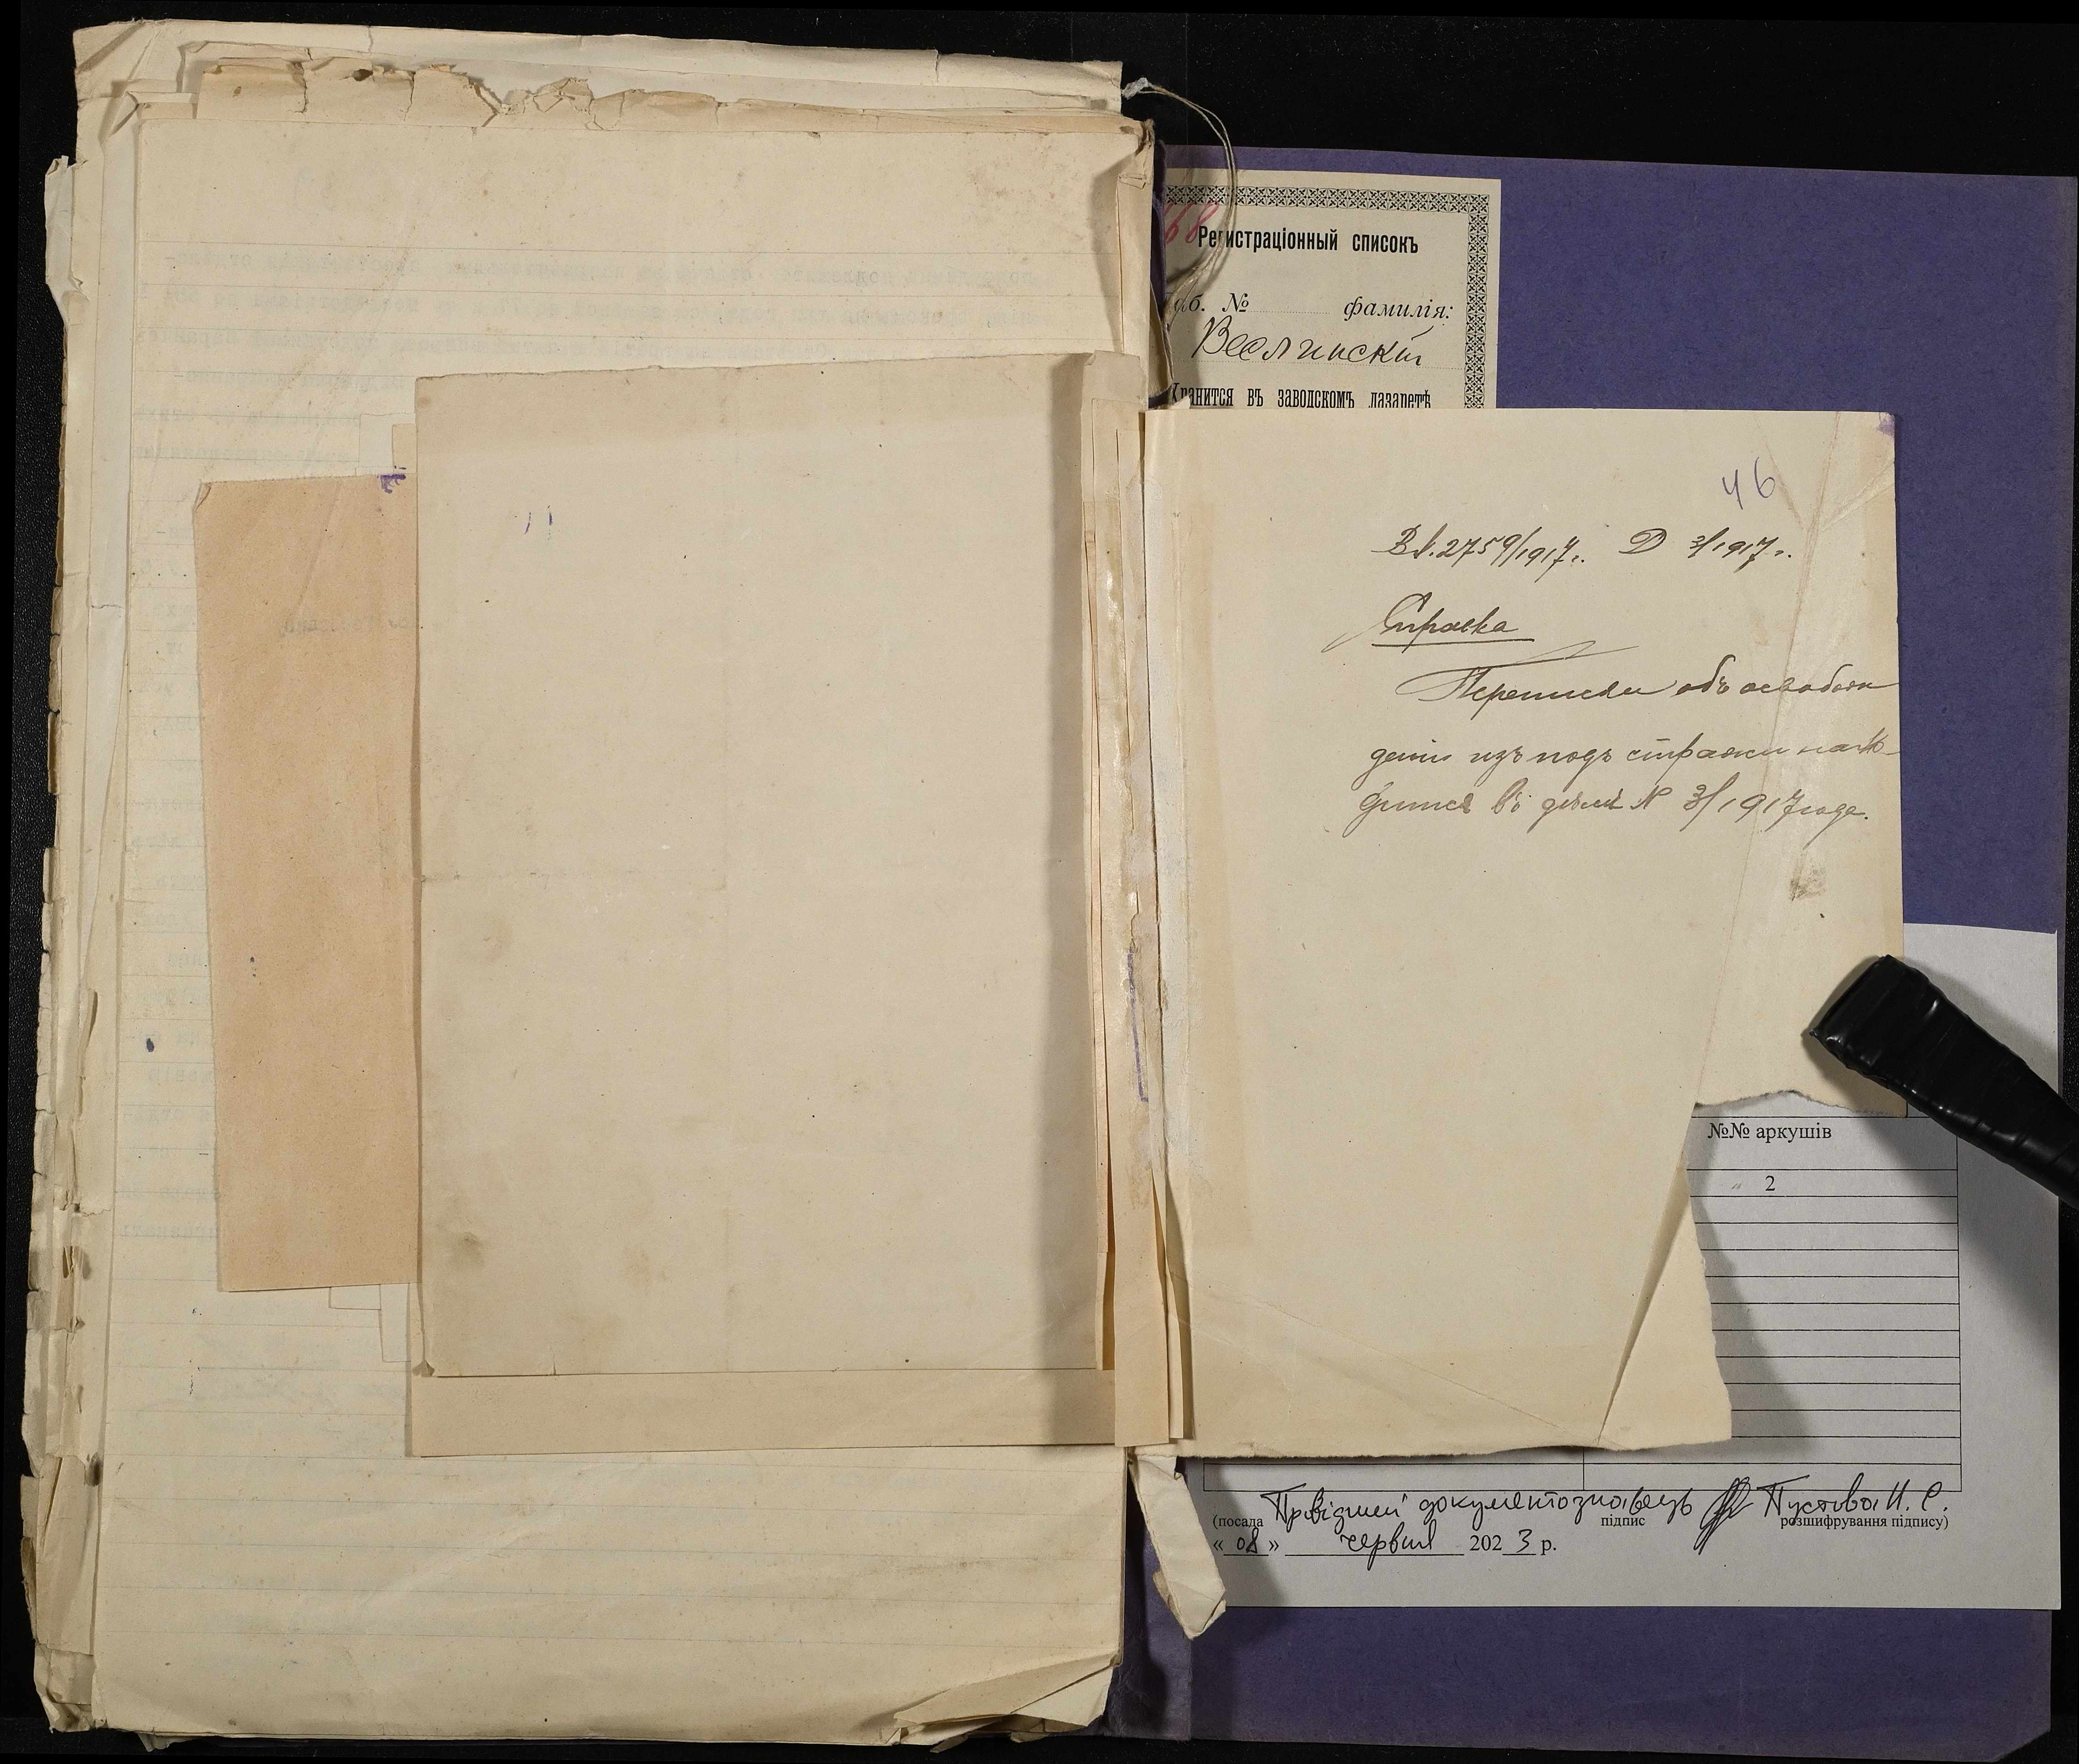 68
Регистраціонный списокъ
об. № фамилія:
Веслинскій
Хранится въ заводскомъ лазаретѣ
46
Вх. 2759/1917 г. Д 3/1917 г.
Справка
Переписка объ освобож
деніи изъ подъ стражи нахо-
дится въ дѣлѣ № 3/1917 года.
№№ аркушів
2
Провідний документознавець Пустова Н. С.
(посада підпис розшифрування підпису)
« 08 » червня 2023 р.